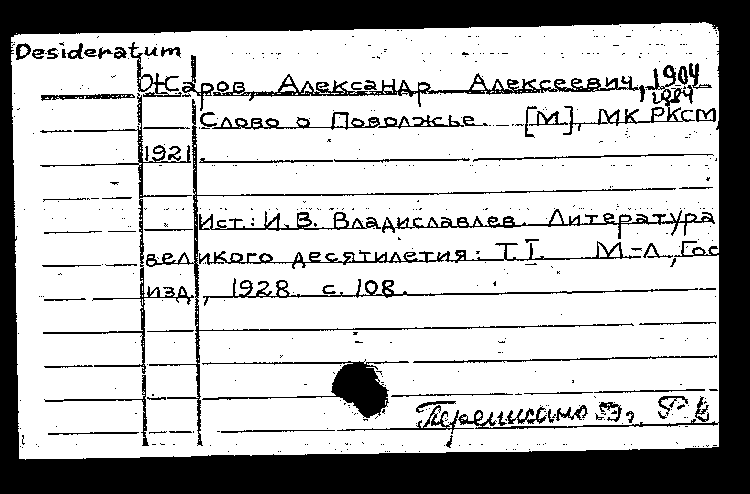 Desideratum
Жаров, Александр Алексеевич, 1904
1984
Слово о Поволжье. [М], МК РКСМ,
1921.
Ист.: И.В. Владиславлев. Литература
великого десятилетия: Т.I. М-Л, Гос
изд., 1928. с. 108.
Переписано 59 г.